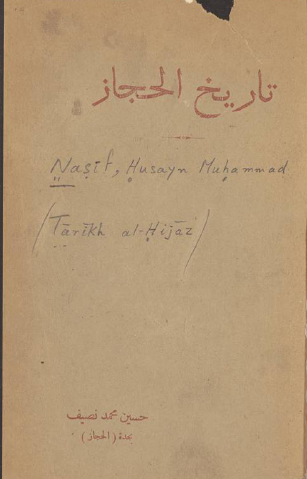 تاريخ الحجاز
Naṣīf, Ḥusayn Muḥammad
/Tārīkh al-Ḥijāz/
حسين محمد نصيف
بجدة (الحجاز)